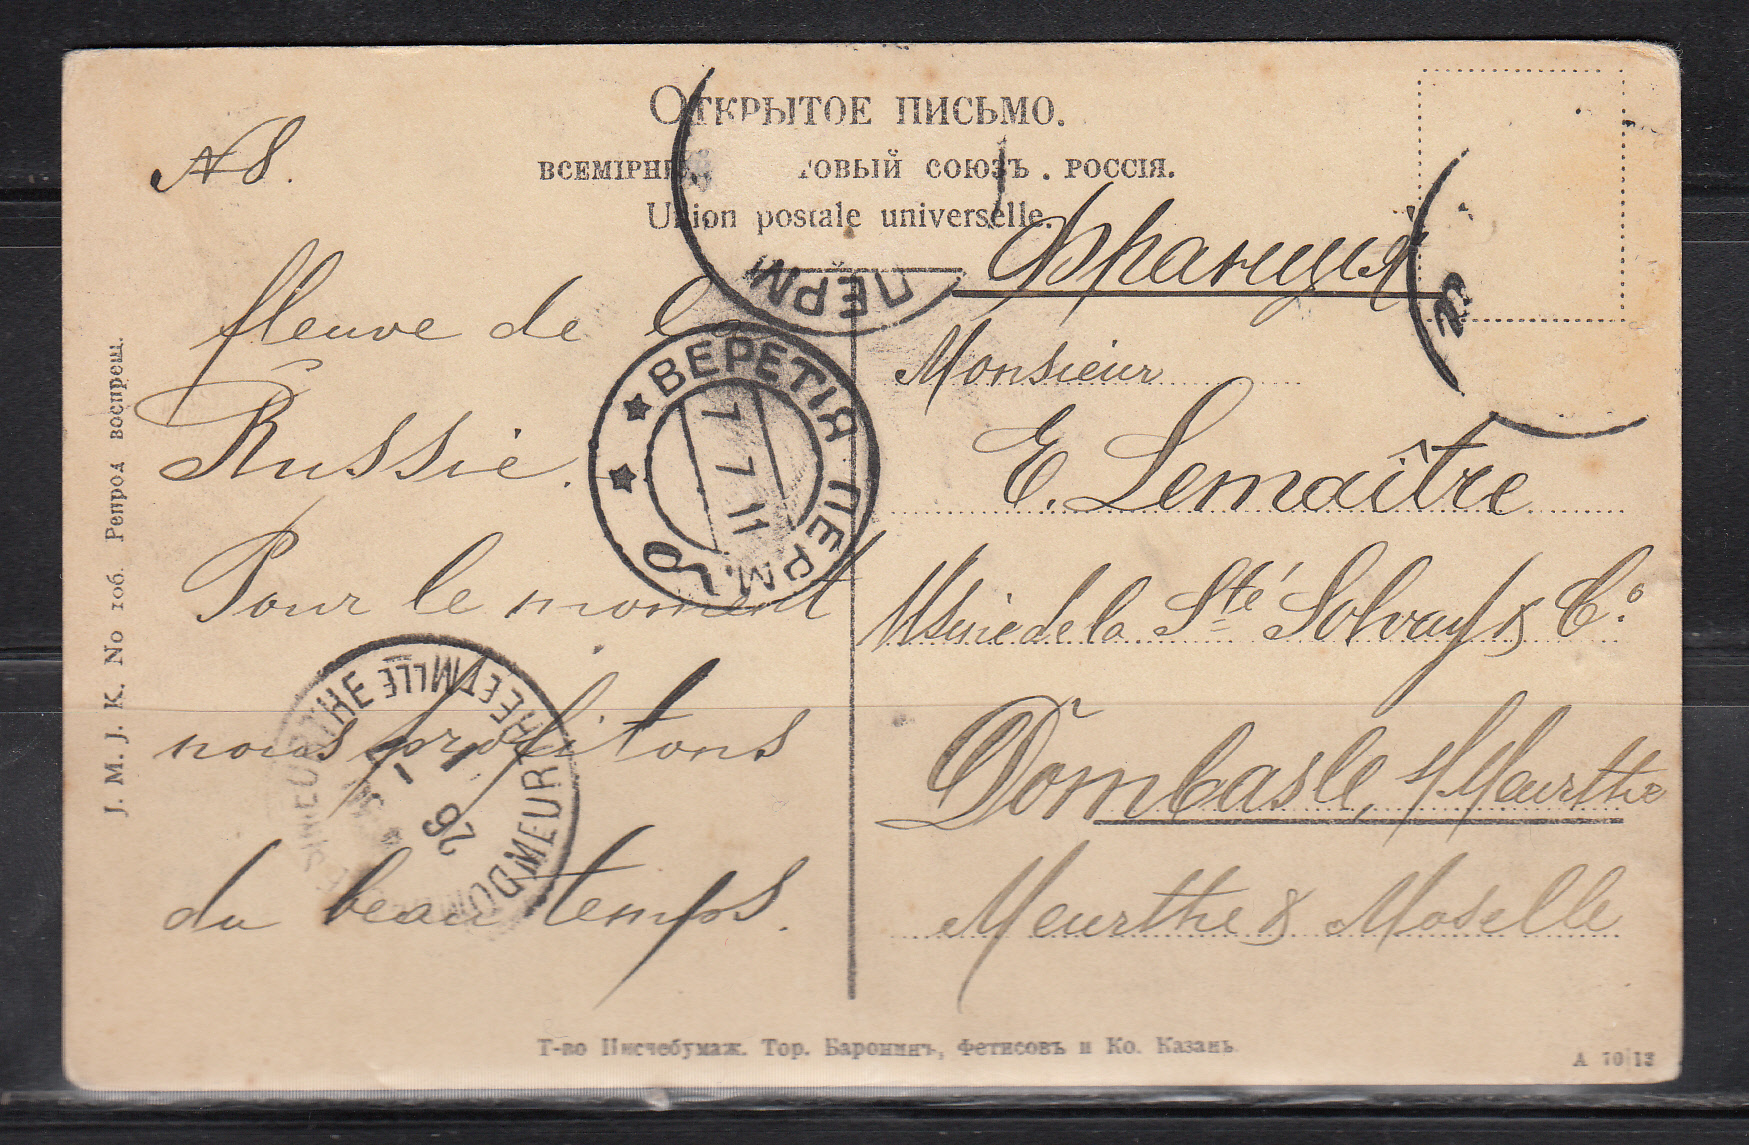 ОТКРЫТОЕ ПИСЬМО.
ВСЕМІРН ТОВЫЙ СОЮЗЪ. РОССІЯ.
Union postale universelle.
N 8.
fleuve de la
Russie.
Pour le moment
nous profitons
du beau temps.
Франція
Monsieur
E. Lemaître
Usine de la Sté Solvay & Co.
Dombasle, s/Meurthe
Meurthe & Moselle
ПЕРМ
ВЕРЕТІЯ ПЕРМ. Г.
7 7 11
б
DOMBASLE S MEURTHE
MEURTHE ET M
26
J. M. J. K. No 106. Репрод воспрещ.
Т-во Писчебумаж. Тор. Баронинъ, Фетисовъ и Ко. Казань
А 10|13